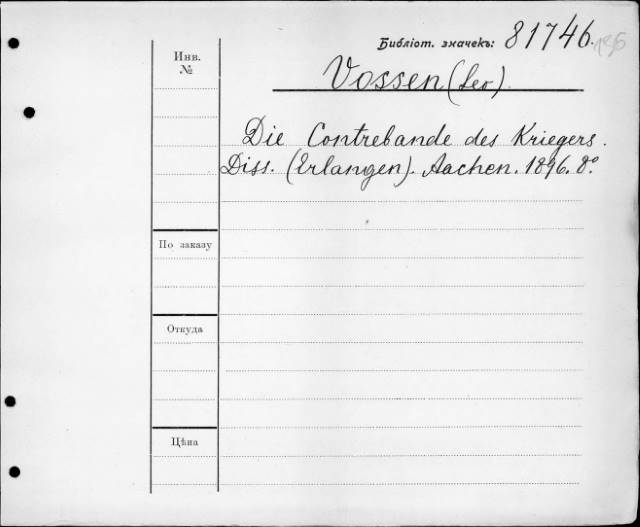 Библіот. значекъ: 81746.
Инв. №
Vossen (Leo).
Die Contrebande des Kriegers.
Diss. (Erlangen). Aachen. 1896. 8º.
По заказу
Откуда
Цѣна